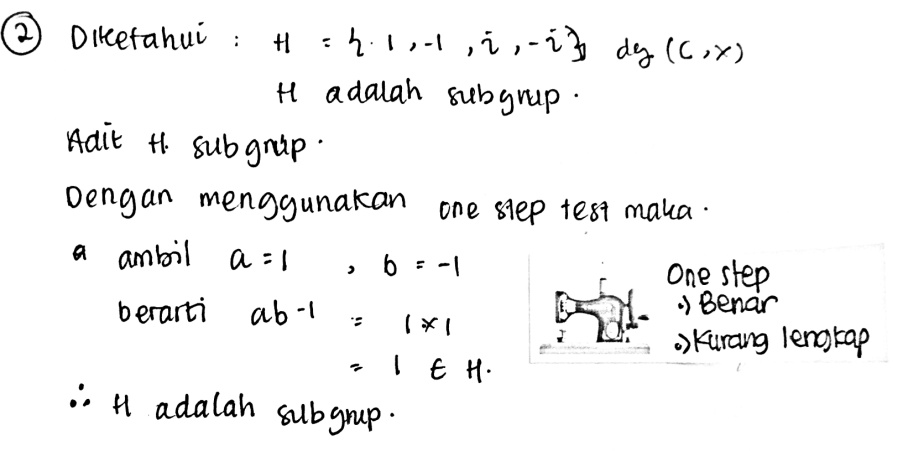 ② Diketahui : H = {. 1 , -1 , i , -i} dg (C , x)
H adalah subgrup.
Adit H. subgrup.
Dengan menggunakan one step test maka.
a ambil a = 1 , b = -1
berarti ab -1 = 1 x 1
= 1 ∈ H.
∴ H adalah subgrup.
One step
•) Benar
•) Kurang lengkap